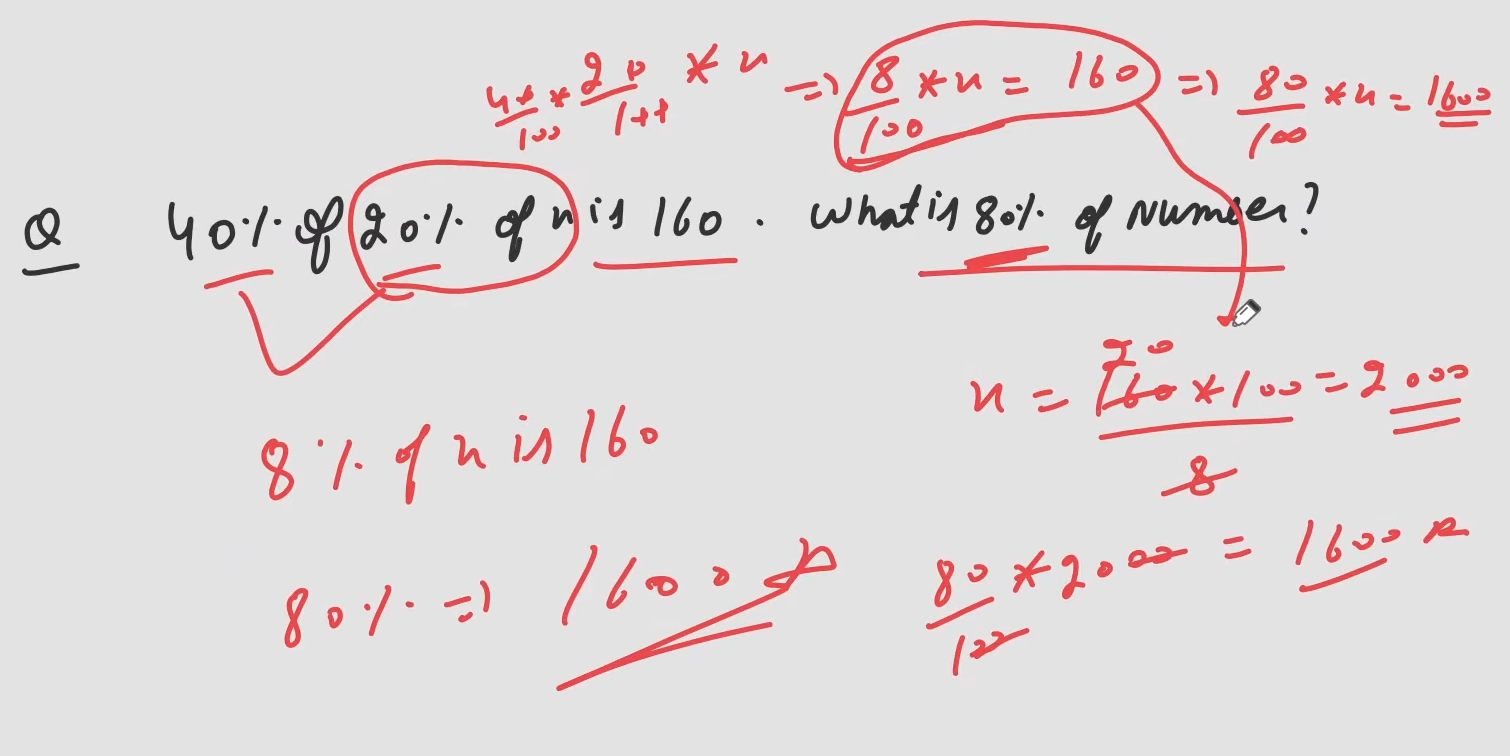 40/100 * 20/100 * n => 8/100 * n = 160 => 80/100 * n = 1600
Q 40% of 20% of n is 160. What is 80% of Number?
n = 160 * 100 / 8 = 2000
20
8% of n is 160
80% => 1600
80/100 * 2000 = 1600